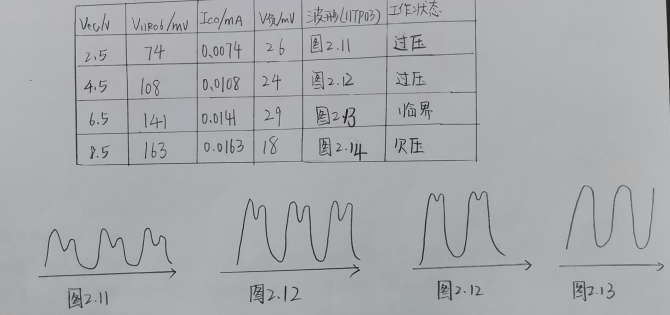 Vcc/V V11R06/mV Ico/mA V负/mV 波形(11TP03) 工作状态
2.5 74 0.0074 26 图2.11 过压
4.5 108 0.0108 24 图2.12 过压
6.5 141 0.0141 29 图2.13 临界
8.5 163 0.0163 18 图2.14 欠压
图2.11 图2.12 图2.12 图2.13